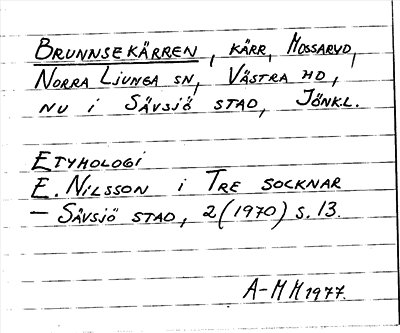 BRUNNSEKÄRREN, KÄRR, MOSSARYD,
NORRA LJUNGA SN, VÄSTRA HD,
NU I SÄVSJÖ STAD, JÖNKL.
ETYMOLOGI
E. NILSSON I TRE SOCKNAR
– SÄVSJÖ STAD, 2(1970) S. 13.
A-MM 1977.